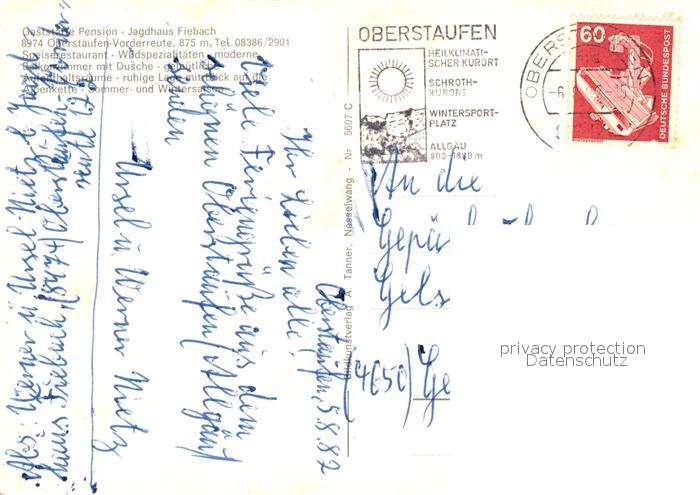 Gaststätte Pension - Jagdhaus Fiebach
8974 Oberstaufen-Vorderreute, 875 m, Tel. 08386/2901
Speiserestaurant - Wildspezialitäten - moderne
Balkonzimmer mit Dusche - gemütliche
Aufenthaltsräume - ruhige Lage mit Blick auf die
Alpenkette - Sommer- und Wintersaison
OBERSTAUFEN
HEILKLIMATI-
SCHER KURORT
SCHROTH-
KURORT
WINTERSPORT-
PLATZ
ALLGÄU
800-1800 m
60
DEUTSCHE BUNDESPOST
A. Tanner, Nesselwang - Nr. 5607 C
Oberstaufen, 5.8.82
Ihr Lieben alle!
Viele Feriengrüße aus dem
schönen Oberstaufen/Allgäu
senden
Ursel u. Werner Nietz
Abs: Werner u. Ursel Nietz
haus Fiebach, (8974) Oberstaufen-
reute 12
An die
Gels
(4650) Ge
privacy protection
Datenschutz